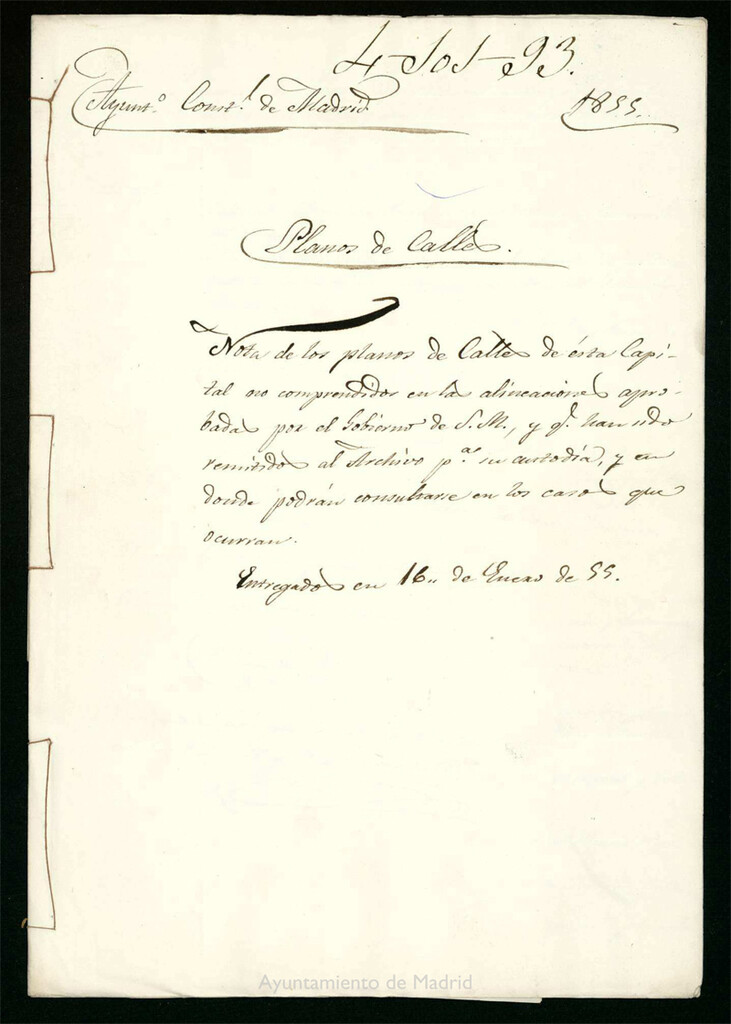 4-501-93.
Ayunt.º Const.l de Madrid
1855.
Planos de Calles.
Nota de los planos de Calles de ésta Capi-
tal no comprendidos en las alineaciones apro-
badas por el Gobierno de S. M., y q.e han sido
remitidos al Archivo p.a su custodia, y en
donde podrán consultarse en los casos que
ocurran.
Entregados en 16,, de Enero de 55.
Ayuntamiento de Madrid